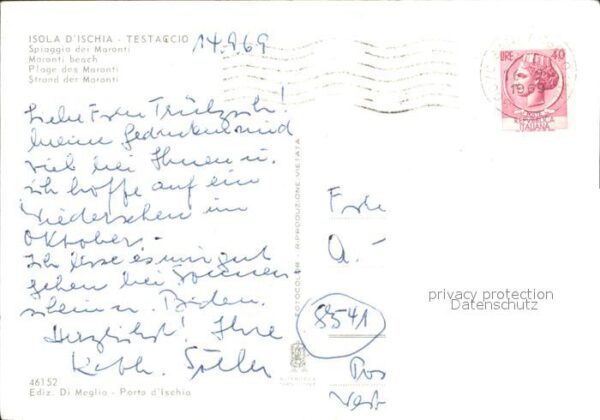 ISOLA D'ISCHIA - TESTACCIO
Spiaggia dei Maronti
Maronti beach
Plage des Maronti
Strand der Maronti
14.9.69
Liebe Frau
meine Gedanken sind
viel bei Ihnen u.
ich hoffe auf ein
Wiedersehen im
Oktober. -
Ich lasse es mir gut
gehen bei Sonnen-
schein u. Baden.
Herzlichst! Ihre
Kath.
46152
Ediz. Di Meglio - Porto d'Ischia
FOTOCOLOR
RIPRODUZIONE VIETATA
POSTE ITALIANE
LIRE 40
REPUBBLICA
ITALIANA
1969
Frau
A. -
8541
privacy protection
Datenschutz